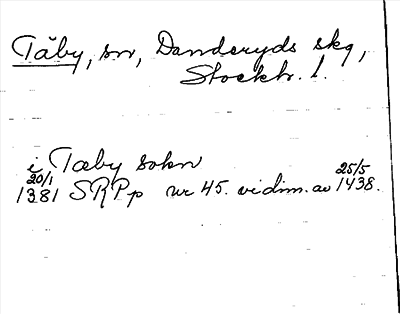 Täby, sn, Danderyds skg,
Stockh. l.
i Tæby sokn
20/1 1381 SRPp nr 45. vidim. av 25/5 1438.